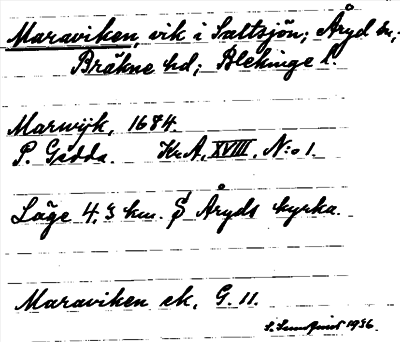 Maraviken, vik i Saltsjön; Åryd sn,
Bräkne hd; Blekinge l.
Marwijk, 1684.
P. Gedda. Kr.A, XVIII, N:o 1.
Läge 4,3 km. S Åryds kyrka.
Maraviken ek. G. 11.
1936.